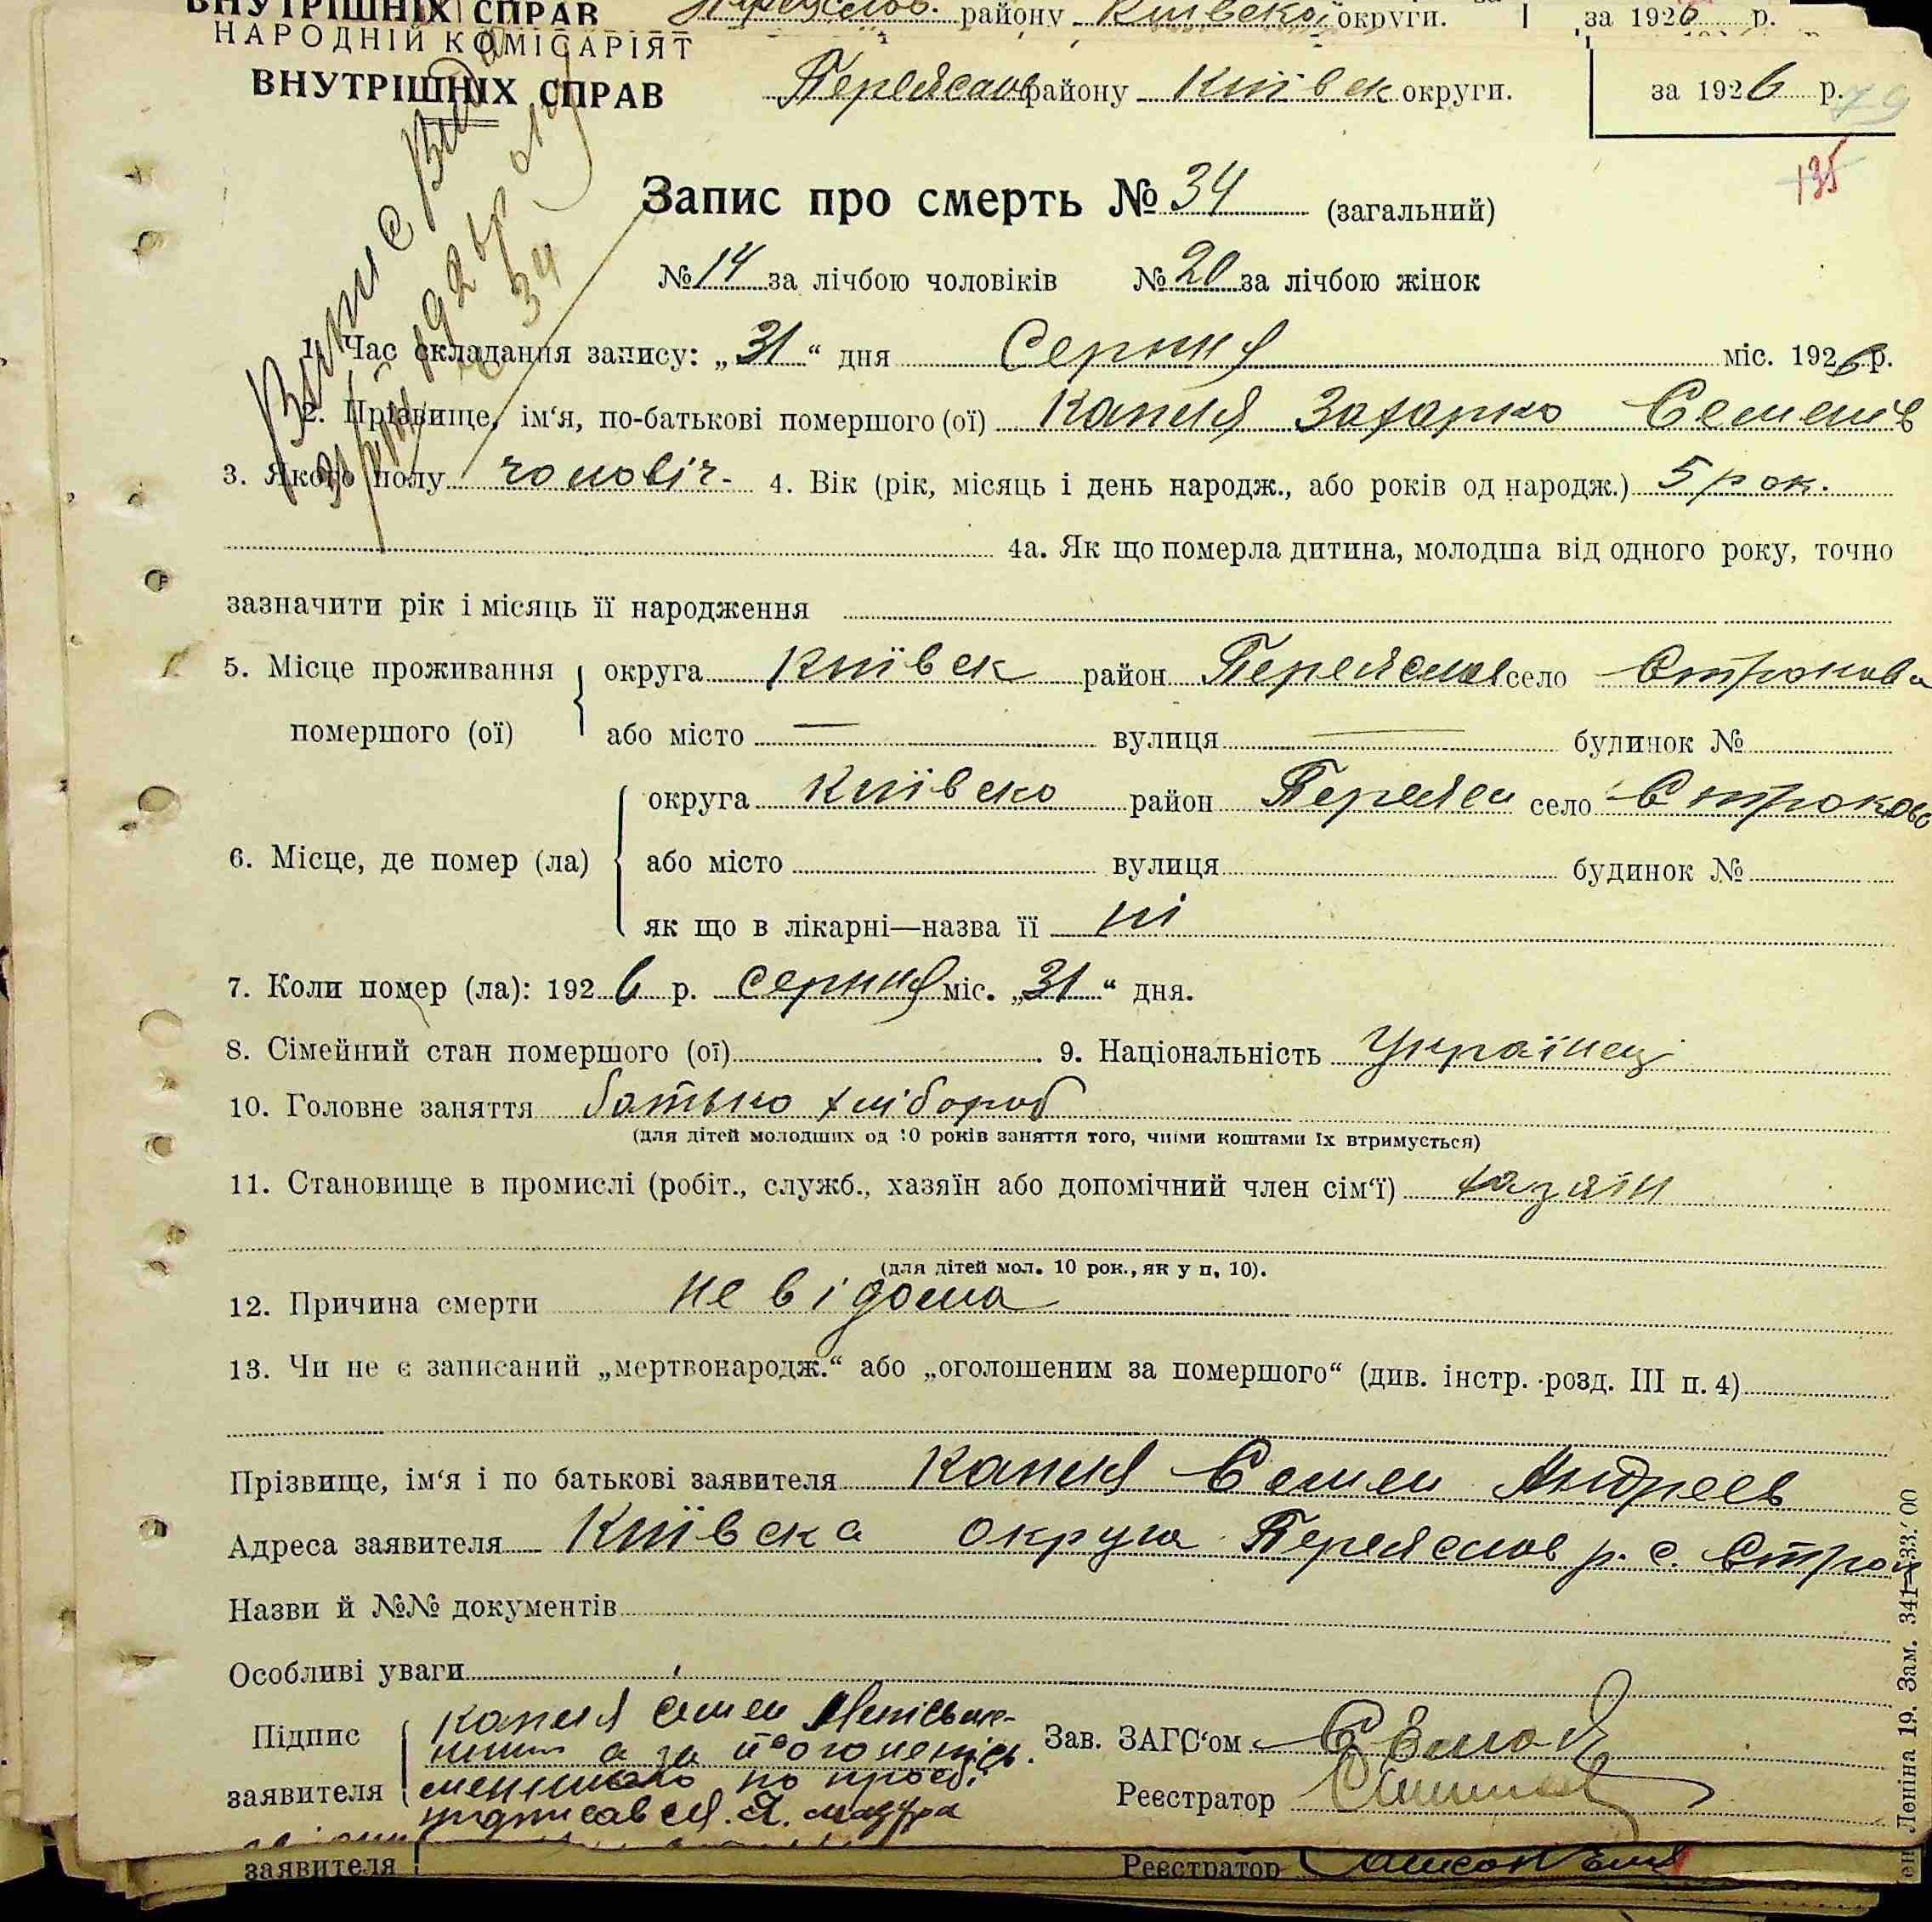 ВНУТРІШНІХ СПРАВ району Київської округи. за 1926 р.
НАРОДНІЙ КОМІСАРІЯТ
ВНУТРІШНІХ СПРАВ Переяслов району Київськ округи. за 1926 р. 79
135
Запис про смерть № 34 (загальний)
№ 14 за лічбою чоловіків № 20 за лічбою жінок
1. Час складання запису: „31“ дня Серпня міс. 1926 р.
2. Прізвище, ім‘я, по-батькові помершого (ої) Капля Захарко Семенів
3. Якого полу чоловіч. 4. Вік (рік, місяць і день народж., або років од народж.) 5 рок.
4а. Як що померла дитина, молодша від одного року, точно
зазначити рік і місяць її народження
5. Місце проживання округа Київськ район Переяслов село Строкова
помершого (ої) або місто — вулиця — будинок №
округа Київсько район Переясл село Строково
6. Місце, де помер (ла) або місто вулиця будинок №
як що в лікарні—назва її ні
7. Коли помер (ла): 1926 р. серпня міс. „31“ дня.
8. Сімейний стан помершого (ої) 9. Національність Українец
10. Головне заняття батько хлібороб
(для дітей молодших од 10 років заняття того, чиїми коштами їх втримується)
11. Становище в промислі (робіт., служб., хазяїн або допомічний член сім‘ї) хазяїн
(для дітей мол. 10 рок., як у п. 10).
12. Причина смерти не відома
13. Чи не є записаний „мертвонародж.“ або „оголошеним за помершого“ (див. інстр. розд. III п. 4)
Прізвище, ім‘я і по батькові заявителя Капля Семен Андреев
Адреса заявителя Київська округа Переяслов р. с. Строк
Назви й №№ документів
Особливі уваги
Підпис Капля Семен
заявителя по прозбі
підписав
Зав. ЗАГС‘ом
Реєстратор
Леніна 19. Зам. 341
заявителя Реєстратор